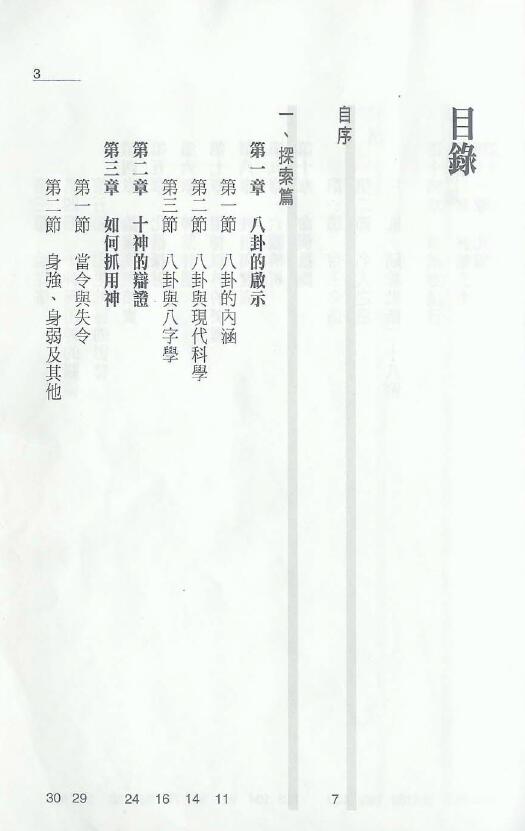 3
目錄
自序 7
一、探索篇
第一章 八卦的啟示
第一節 八卦的內涵 11
第二節 八卦與現代科學 14
第三節 八卦與八字學 16
第二章 十神的辯證 24
第三章 如何抓用神
第一節 當令與失令 29
第二節 身強、身弱及其他 30